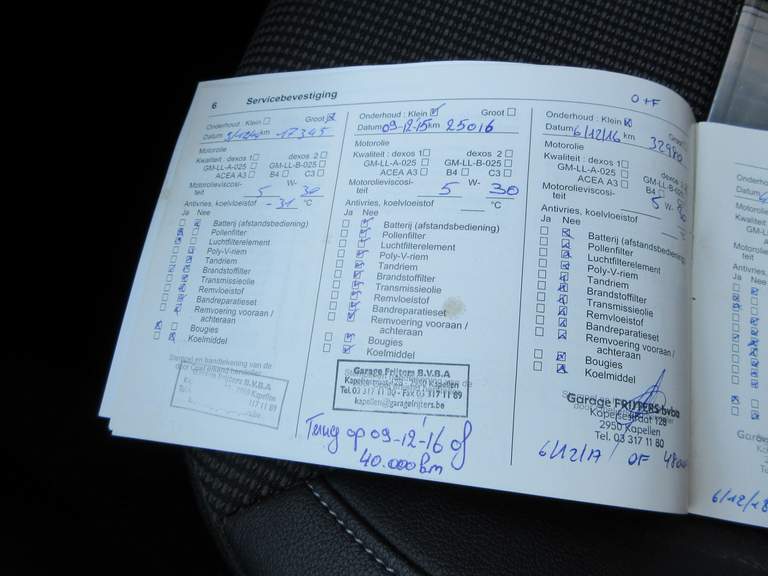 6 Servicebevestiging
Onderhoud : Klein Groot
Datum km 17345
Motorolie
Kwaliteit : dexos 1 dexos 2
GM-LL-A-025 GM-LL-B-025
ACEA A3 B4 C3
Motorolieviscosi-
teit 5 W- 30
Antivries, koelvloeistof -31 °C
Ja Nee
Batterij (afstandsbediening)
Pollenfilter
Luchtfilterelement
Poly-V-riem
Tandriem
Brandstoffilter
Transmissieolie
Remvloeistof
Bandreparatieset
Remvoering vooraan /
achteraan
Bougies
Koelmiddel
Stempel en handtekening van de
door Opel erkend hersteller
Garage Frijters B.V.B.A
2950 Kapellen
317 11 89
Onderhoud : Klein Groot
Datum 09-12-15 km 25016
Motorolie
Kwaliteit : dexos 1 dexos 2
GM-LL-A-025 GM-LL-B-025
ACEA A3 B4 C3
Motorolieviscosi-
teit 5 W- 30
Antivries, koelvloeistof °C
Ja Nee
Batterij (afstandsbediening)
Pollenfilter
Luchtfilterelement
Poly-V-riem
Tandriem
Brandstoffilter
Transmissieolie
Remvloeistof
Bandreparatieset
Remvoering vooraan /
achteraan
Bougies
Koelmiddel
Garage Frijters B.V.B.A
Kapelsestraat 128 - 2950 Kapellen
Tel. 03 317 11 80 - Fax 03 317 11 89
kapellen@garagefrijters.be
Terug op 09-12-'16 of
40.000 km
O+F
Onderhoud : Klein Groot
Datum 6/12/16 km 32980
Motorolie
Kwaliteit : dexos 1 dexos 2
GM-LL-A-025 GM-LL-B-025
ACEA A3 B4
Motorolieviscosi-
teit 5 W-
Antivries, koelvloeistof
Ja Nee
Batterij (afstandsbediening)
Pollenfilter
Luchtfilterelement
Poly-V-riem
Tandriem
Brandstoffilter
Transmissieolie
Remvloeistof
Bandreparatieset
Remvoering vooraan /
achteraan
Bougies
Koelmiddel
Garage FRIJTERS bvba
Kapelsestraat 128
2950 Kapellen
Tel. 03 317 11 80
6/12/17 OF
Onderhoud
Datum
Motorolie
Kwaliteit
GM-LL
Motorolie
teit
Antivries,
Ja Nee
6/12/18